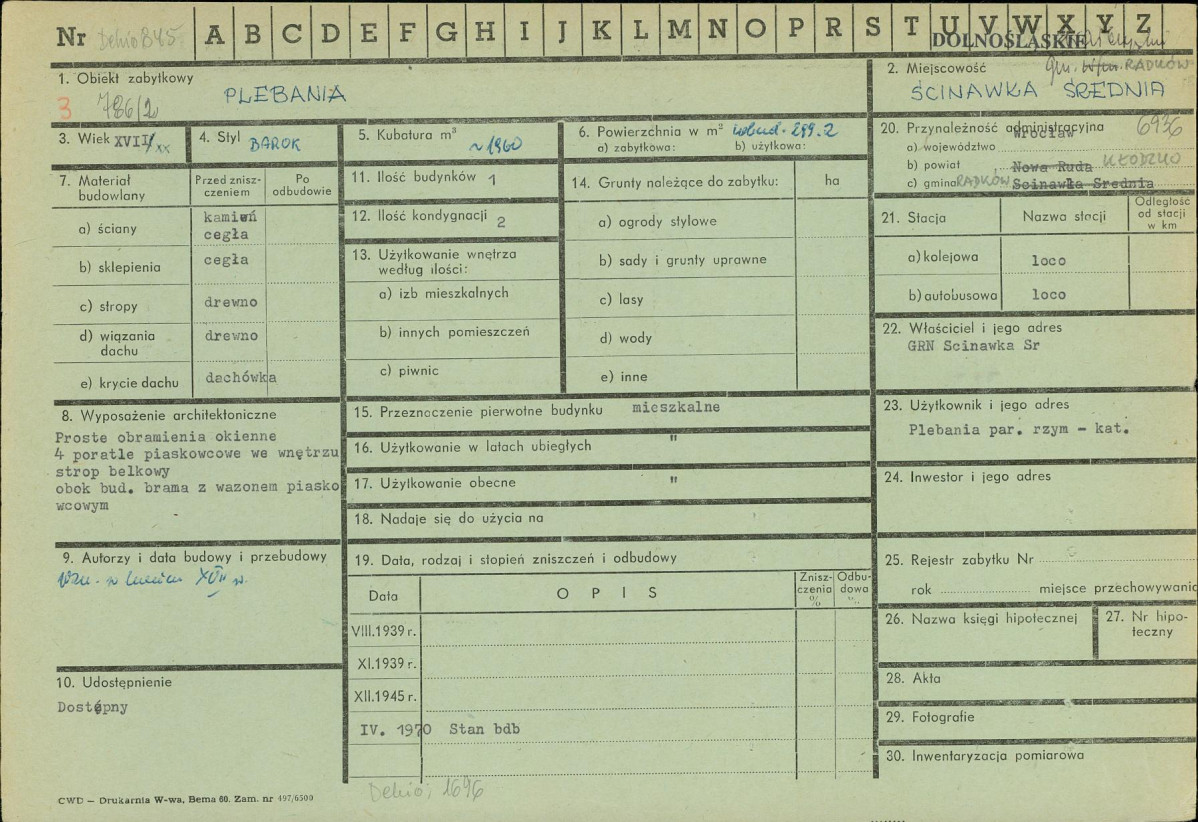 Nr Dehio 845 A B C D E F G H I J K L M N O P R S T U V W X Y Z
DOLNOŚLĄSKIE
1. Obiekt zabytkowy
3 786/2 PLEBANIA
2. Miejscowość gm. RADKÓW
ŚCINAWKA ŚREDNIA
3. Wiek XVII/XX
4. Styl BAROK
5. Kubatura m³
~1960
6. Powierzchnia w m² zabud. 299.2
a) zabytkowa: b) użytkowa:
20. Przynależność administracyjna 6936
a) województwo Wrocław
b) powiat Nowa Ruda KŁODZKO
c) gmina RADKÓW Scinawka Srednia
7. Materiał budowlany
Przed znisz-
czeniem
Po
odbudowie
a) ściany kamień
cegła
b) sklepienia cegła
c) stropy drewno
d) wiązania drewno
dachu
e) krycie dachu dachówka
11. Ilość budynków 1
12. Ilość kondygnacji 2
13. Użytkowanie wnętrza
według ilości:
a) izb mieszkalnych
b) innych pomieszczeń
c) piwnic
14. Grunty należące do zabytku: ha
a) ogrody stylowe
b) sady i grunty uprawne
c) lasy
d) wody
e) inne
21. Stacja Nazwa stacji
Odległość
od stacji
w km
a) kolejowa loco
b) autobusowa loco
22. Właściciel i jego adres
GRN Scinawka Sr
8. Wyposażenie architektoniczne
Proste obramienia okienne
4 poratle piaskowcowe we wnętrzu
strop belkowy
obok bud. brama z wazonem piasko
wcowym
15. Przeznaczenie pierwotne budynku mieszkalne
16. Użytkowanie w latach ubiegłych "
17. Użytkowanie obecne "
18. Nadaje się do użycia na
23. Użytkownik i jego adres
Plebania par. rzym - kat.
24. Inwestor i jego adres
9. Autorzy i data budowy i przebudowy
wzn. w końcu XVII w.
10. Udostępnienie
Dostępny
19. Data, rodzaj i stopień zniszczeń i odbudowy
Data OPIS
Znisz-
czenia
%
Odbu-
dowa
%
VIII.1939 r.
XI.1939 r.
XII.1945 r.
IV. 1970 Stan bdb
25. Rejestr zabytku Nr
rok miejsce przechowywania
26. Nazwa księgi hipotecznej
27. Nr hipo-
teczny
28. Akta
29. Fotografie
30. Inwentaryzacja pomiarowa
Dehio; 1696
CWD – Drukarnia W-wa, Bema 60. Zam. nr 497/6500